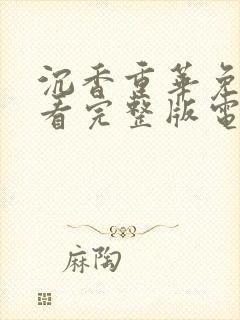 沉香重華免
看完整版電
麻陶